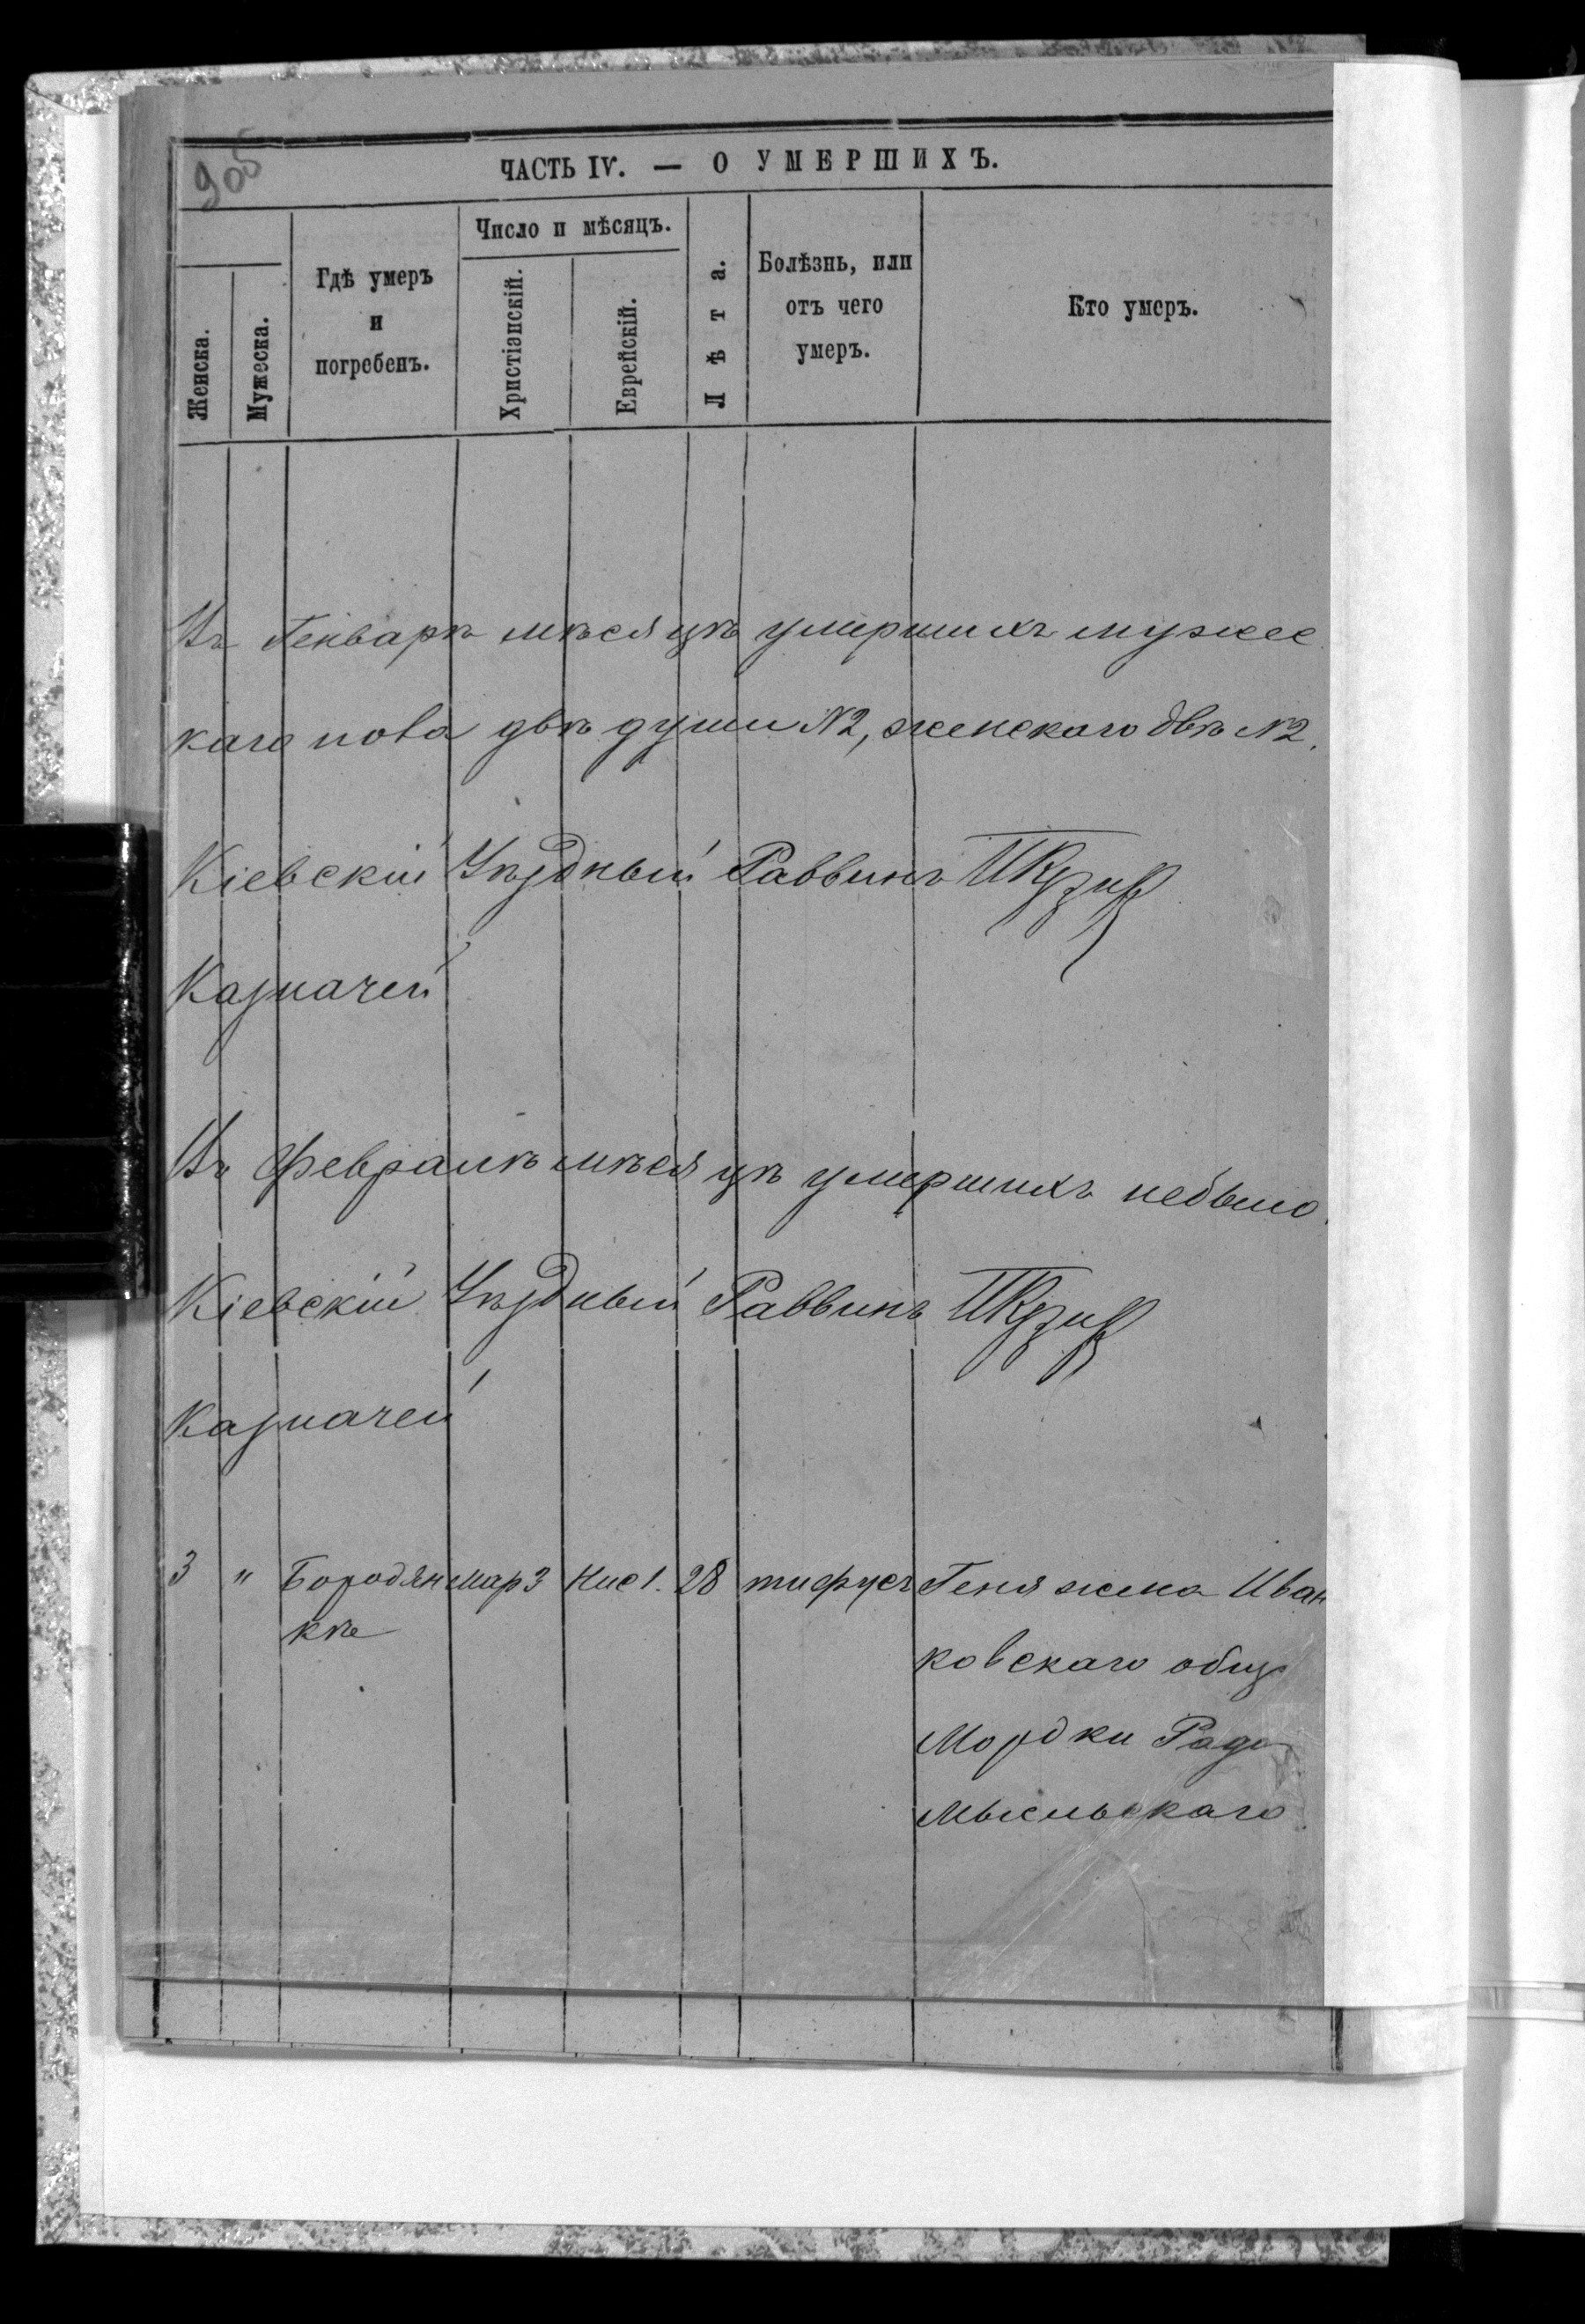 905
ЧАСТЬ IV. — О УМЕРШИХЪ.
Женска.
Мужеска.
Гдѣ умеръ
и
погребенъ.
Число и мѣсяцъ.
Христіянскій.
Еврейскій.
Лѣта.
Болѣзнь, или
отъ чего
умеръ.
Кто умеръ.
Въ Генварѣ мѣсяцѣ умершихъ мужес
каго пола двѣ души №2, женскаго двѣ №2.
Кіевскій Уѣздный Раввинъ
Казначей
Въ Февралѣ мѣсяцѣ умершихъ небыло.
Кіевскій Уѣздный Раввинъ
Казначей
3 " Бородян мар 3 Нис 1. 28 тифусъ Геня жена Иван
кѣ
ковскаго общ
Мордки Радо
мысльскаго